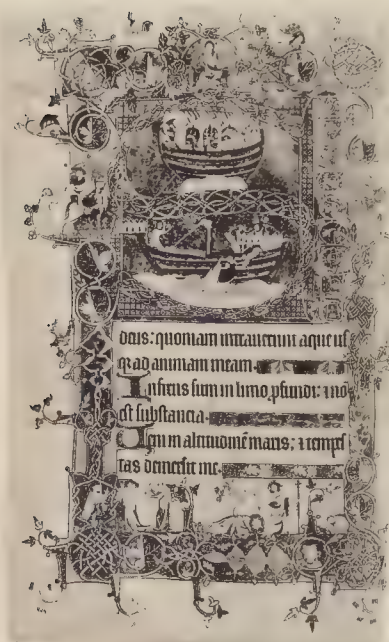 deus: quoniam intrauerunt aque usq
q ad animam meam.
Infixus sum in limo pfundi: ⁊ nō
est substancia.
Veni in altitudinē maris: ⁊ tempes
tas demersit me.